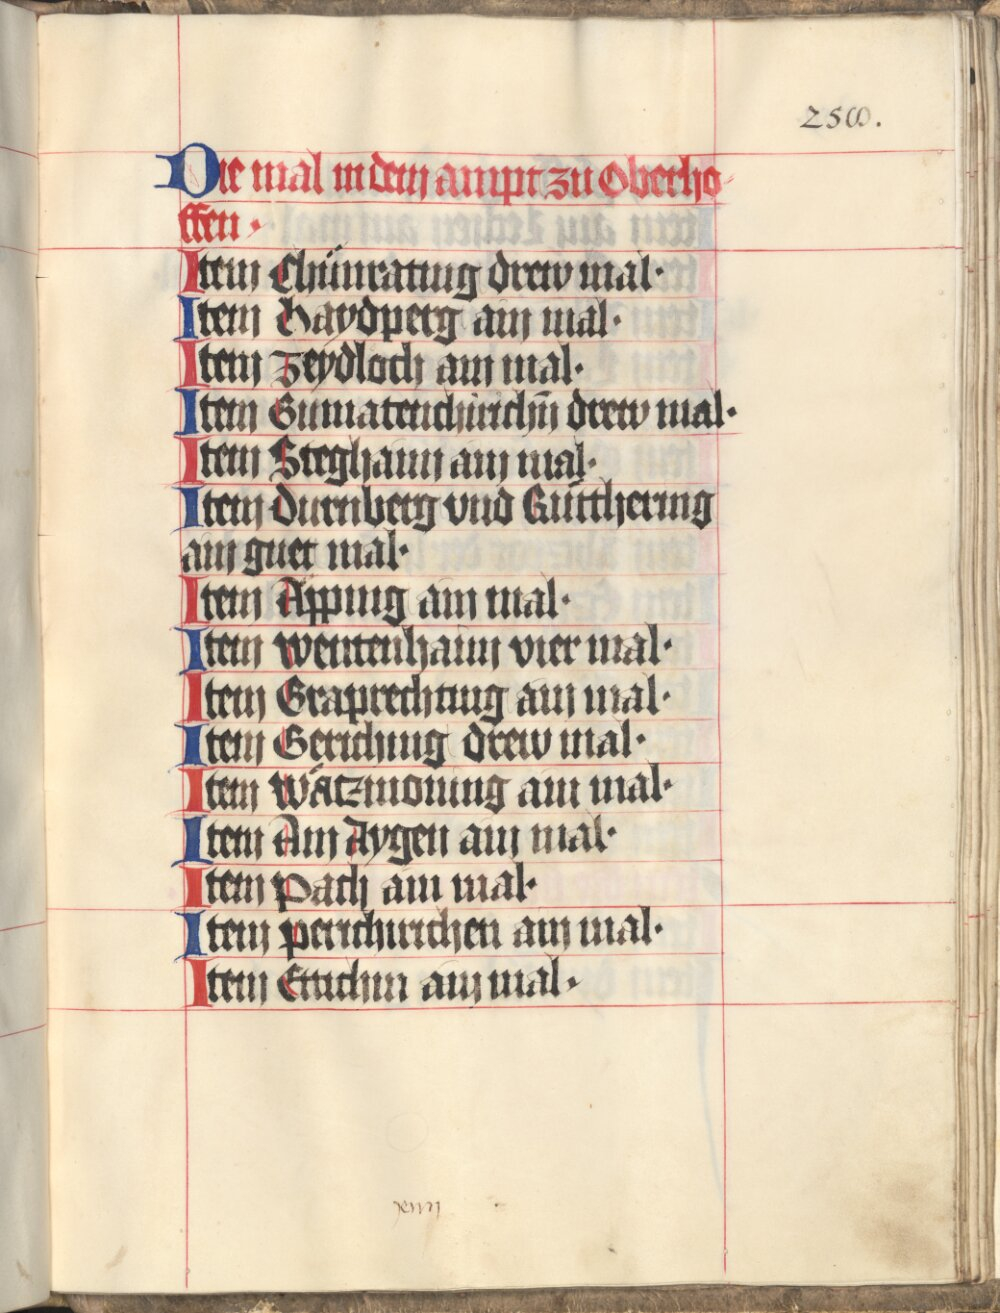 258.
Die mal in dem ampt zu Oberho-
ffen.
Item Chünrating drew mal.
Item Haydperg ain mal.
Item Zeydloch ain mal.
Item Gumatenchirichñ drew mal.
Item Steghaim ain mal.
Item Durnberg vnd Gütthering
ain guet mal.
Item Apping ain mal.
Item Wentenhaim vier mal.
Item Graprechting ain mal.
Item Geriching drew mal.
Item Wätzmoning ain mal.
Item Am Aygen ain mal.
Item Pach ain mal.
Item Perichirichen ain mal.
Item Ettichin ain mal.